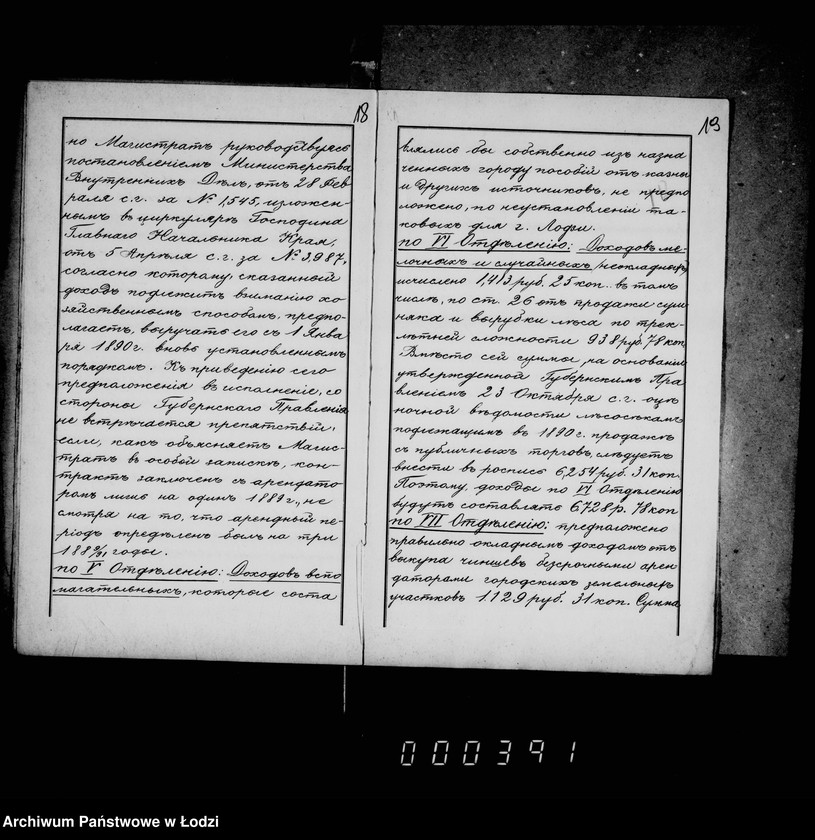 18
но Магистратъ руководствуясь
постановленіемъ Министерства
Внутреннихъ Дѣлъ, отъ 28 Фев-
раля с.г. за № 1,545, изложен-
нымъ въ циркулярѣ Господина
Главнаго Начальника Края,
отъ 5 Апрѣля с.г. за № 3,987,
согласно которому, сказанный
доходъ подлежитъ взиманію хо-
зяйственнымъ способомъ, предпо-
лагаетъ, выручать его съ 1 Янва
ря 1890 г. вновь установленнымъ
порядкомъ. Къ приведенію сего
предположенія въ исполненіе, со
стороны Губернскаго Правленія
не встрѣчается препятствій,
если, какъ объясняетъ Магис-
тратъ въ особой запискѣ, кон-
трактъ заключенъ съ арендато-
ромъ лишь на одинъ 1889 г., не
смотря на то, что арендный пе-
ріодъ опредѣленъ былъ на три
188 9/91 годы.
по V Отдѣленію: Доходовъ вспо
магательныхъ, которые соста
19
влялись бы собственно изъ назна
ченныхъ городу пособій отъ казны
и другихъ источниковъ, не предпо
ложено, по неустановленіи та-
ковыхъ для г. Лодзи.
по VI Отдѣленію: Доходовъ ме-
лочныхъ и случайныхъ (неокладныхъ)
исчислено 1,413 руб. 25 коп. въ томъ
числѣ, по ст. 26 отъ продажи суш
няка и вырубки лѣса по трех-
лѣтней сложности 938 руб. 78 коп
Вмѣсто сей суммы, на основаніи
утвержденной Губернскимъ Пра
вленіемъ 23 Октября с.г. оцѣ
ночной вѣдомости лѣсосѣкамъ
подлежащимъ въ 1890 г. продажѣ
съ публичныхъ торговъ, слѣдуетъ
внести въ роспись 6,254 руб. 31 коп.
Поэтому доходы по VI Отдѣленію
будутъ составлять 6728 р. 78 коп
по VII Отдѣленію: предположено
правильно окладнымъ доходамъ отъ
выкупа чиншевъ безсрочными арен
даторами городскихъ земельныхъ
участковъ 1,129 руб. 31 коп. Сумма
000391
Archiwum Państwowe w Łodzi